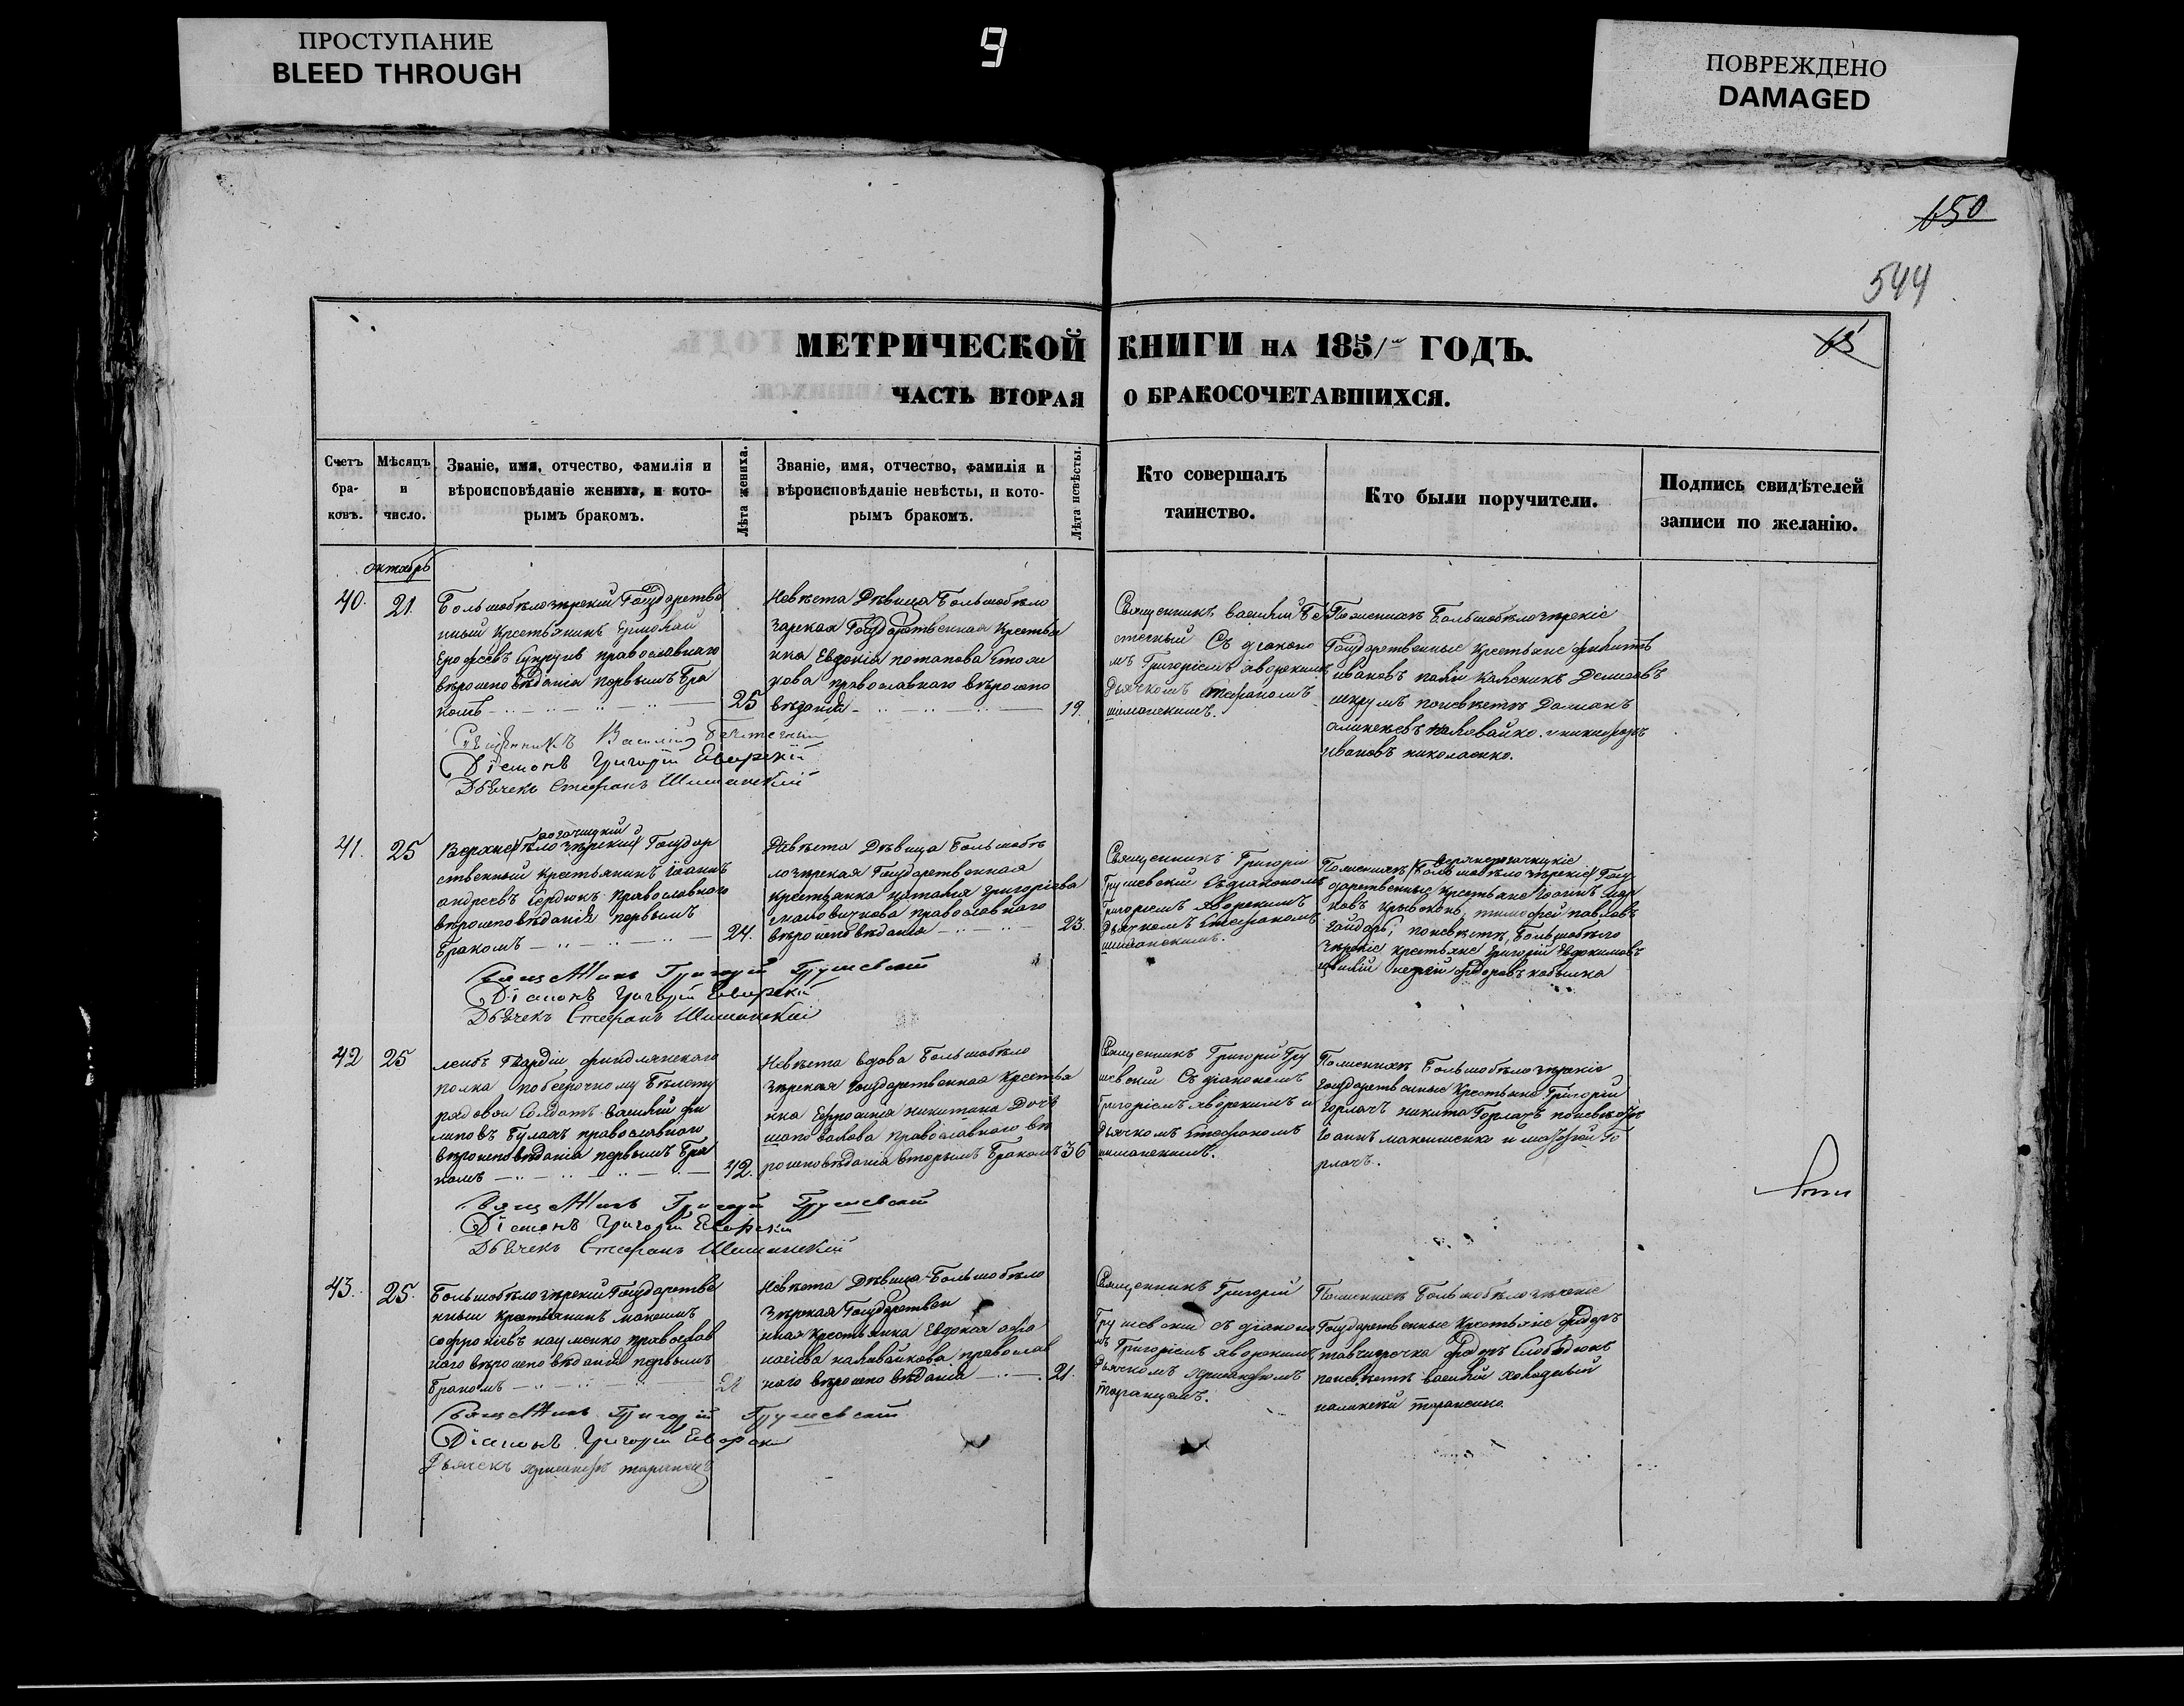 ПРОСТУПАНИЕ
BLEED THROUGH
9
ПОВРЕЖДЕНО
DAMAGED
150
544
МЕТРИЧЕСКОЙ КНИГИ НА 1851 ГОДЪ.
ЧАСТЬ ВТОРАЯ О БРАКОСОЧЕТАВШИХСЯ.
Счетъ
бра-
ковъ.
Мѣсяцъ
и
число.
Званіе, имя, отчество, фамилія и
вѣроисповѣданіе жениха, и кото-
рымъ бракомъ.
Лѣта жениха.
Званіе, имя, отчество, фамилія и
вѣроисповѣданіе невѣсты, и кото-
рымъ бракомъ.
Лѣта невѣсты.
Кто совершалъ
таинство.
Кто были поручители.
Подпись свидѣтелей
записи по желанію.
октабрь
40.
21.
Большобѣлозѣрскій Государстве
нный Крестьянинъ Ермолай
Ерофѣевъ православнаго
вѣроисповѣданія первымъ бра
комъ
25
Невѣста Дѣвица Большобѣло
зѣрская Государственная Крестья
нка Евдокія потапова
кова православнаго вѣроиспо
вѣданія
19.
Священникъ Василій Бе
стечный Съ діаконо
мъ Григоріемъ яворскимъ
Дьячкомъ Стефаномъ
шиманскимъ.
Поженихѣ Большобѣлозѣрскіе
Государственные крестьяне
ивановъ
поневѣстѣ Даміанъ
наливайко. и никифоръ
ивановъ николаенко.
Священникъ Василій
Діаконъ Григорій Яворскій
Дьячекъ Стефанъ Шиманскій
41.
25
Верхне рогачицкій Государ
ственный крестьянинъ Іоаннъ
андреевъ Сердюкъ православнаго
вѣроисповѣданія первымъ
бракомъ
24.
Невѣста Дѣвица Большобѣ
лозѣрская Государственная
крестьянка наталія григоріева
православнаго
вѣроисповѣданія
23.
Священникъ Григорій
Грушевскій съ діакономъ
Григоріемъ Яворскимъ
Дьячкомъ Стефаномъ
шиманскимъ.
Поженихѣ верхнерогачицкіе Госу
дарственные крестьяне Іоаннъ мар
ковъ крывоконь, тимофей павловъ
Гайдарь; поневѣстѣ, Большобѣло
зѣрскіе крестьяне Григорій Евдокимовъ
федоровъ кобылка
Священникъ Григорій Грушевскій
Діаконъ Григорій Яворскій
Дьячекъ Стефанъ Шиманскій
42
25
лейбъ Гвардіи финдлянскаго
полка побезсрочному билету
рядовой Солдатъ Василій фи
липовъ Булахъ православнаго
вѣроисповѣданія первымъ бра
комъ
42.
Невѣста вдова Большобѣло
зѣрская Государственная Крестья
нка Ефросинія никитина Дочь
шаповалова православнаго вѣ
роисповѣданія вторымъ бракомъ
36
Священникъ Григорій Гру
шевскій Съ діакономъ
Григоріемъ яворскимъ и
Дьячкомъ Стефаномъ
шиманскимъ.
Поженихѣ Большобѣлозѣрскіе
государственные Крестьяне Григорій
горлачъ никита Горлачъ поневѣстѣ
Іоаннъ макишенко и Го
рлачъ.
Священникъ Григорій Грушевскій
Діаконъ Григорій Яворскій
Дьячекъ Стефанъ Шиманскій
43.
25.
Большобѣлозѣрскій Государстве
нный крестьянинъ максимъ
софроніевъ науменко православ
наго вѣроисповѣданія первымъ
бракомъ
Невѣста Дѣвица Большобѣло
зѣрская Государствен
нная крестьянка Евдокія афа
насіева наливайкова православ
наго вѣроисповѣданія
21.
Священникъ Григорій
Грушевскій съ діаконо
мъ Григоріемъ яворскимъ
Дьячкомъ
таранцемъ.
Поженихѣ Большобѣлозѣрскіе
Государственные Крестьяне Федоръ
Федоръ Слободюкъ
поневѣстѣ василій холодный
тарасенко.
Священникъ Григорій Грушевскій
Діаконъ Григорій Яворскій
Дьячекъ таранецъ